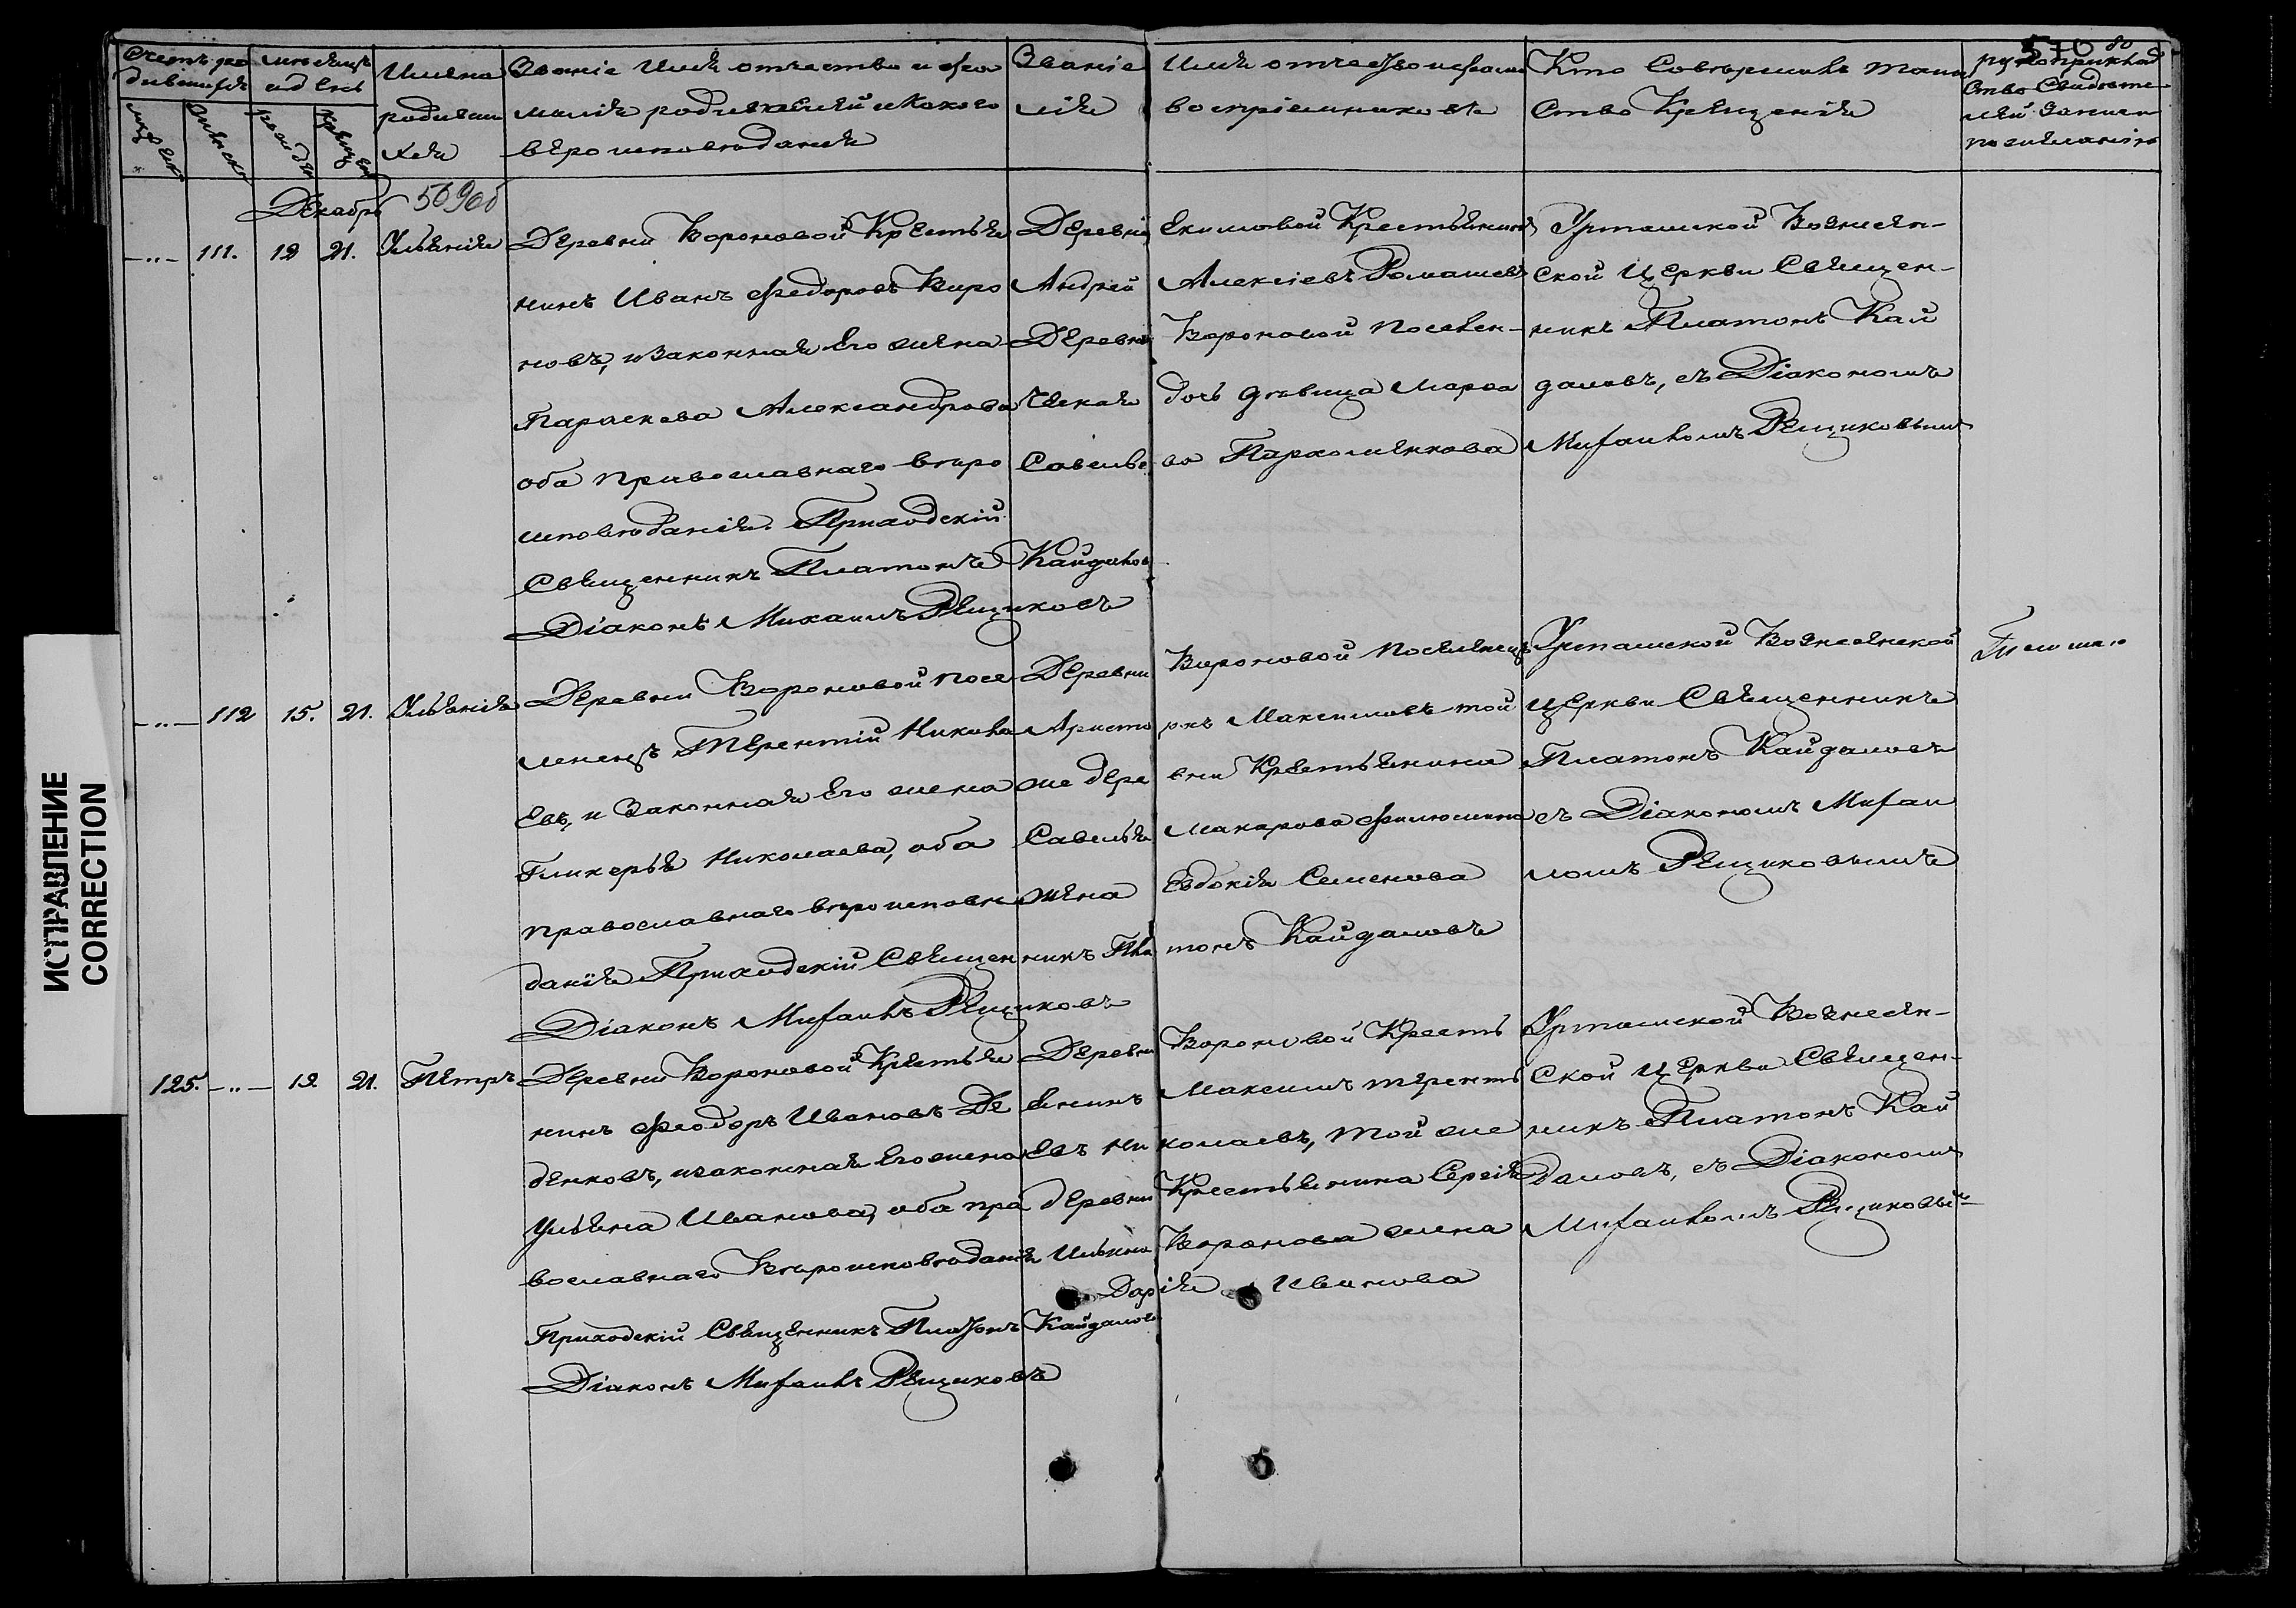 570 80
Счетъ ро
дившихся
мѣсяцъ
и день
Имена
родивши
хся
Званіе Имя отчество и фа
милія родителей и Какого
вѣроисповѣданія
Званіе Имя отчество и фами
лія воспріемниковъ
Кто Совершилъ таин
Ство Крещенія
рукоприклад
ство Свидѣте
лей записи
по желанію
Декабрь 569об
-..- 111. 12 21. Ульянія
Деревни Вороновой Крестья
нинъ Иванъ Федоровъ Воро
новъ, и Законная Его жена
Параскева Александрова
оба православнаго вѣро
исповѣданія. Приходскій
Священникъ Платонъ Кайдаловъ
Діаконъ Михаилъ Рещиковъ
Деревни Екимовой Крестьянинъ
Андрей Алексіевъ Ромашевъ
Деревни Вороновой поселен-
ческая дочь дѣвица Марѳа
Савельева Пархоменкова
Уртамской Вознесен-
ской Церкви Священ-
никъ Платонъ Кай
даловъ, съ Діакономъ
Михаиломъ Рещиковымъ
-..- 112 15. 21. Ульянія
Деревни Вороновой посе
ленецъ Терентій Никола
Евъ, и Законная Его жена
Гликерья Николаева, оба
православнаго вѣроисповѣ
данія Приходскій Священникъ Платонъ Кайдаловъ
Діаконъ Михаилъ Рещиковъ
Деревни Вороновой поселенецъ
Максимовъ той
же деревни Крестьянина
Савелья Макарова
жена Евдокія Семенова
Уртамской Вознесенской
Церкви Священникъ
Платонъ Кайдаловъ
съ Діакономъ Михаи
ломъ Рещиковымъ
125. -..- 12. 21. Петръ
Деревни Вороновой Крестья
нинъ Феодоръ Ивановъ Де
денковъ, и законная Его жена
Ульяна Иванова, оба пра
вославнаго Вѣроисповѣданія
Приходскій Священникъ Платонъ Кайдаловъ
Діаконъ Михаилъ Рещиковъ
Деревни Вороновой Кресть
янинъ Максимъ терентъ
евъ Николаевъ, той же
деревни Крестьянина Сергія
Ильина Воронова жена
Дарія Иванова
Уртамской Вознесен-
ской Церкви Священ-
никъ Платонъ Кай
даловъ, съ Діакономъ
Михаиломъ Рещиковым
ИСПРАВЛЕНИЕ
CORRECTION